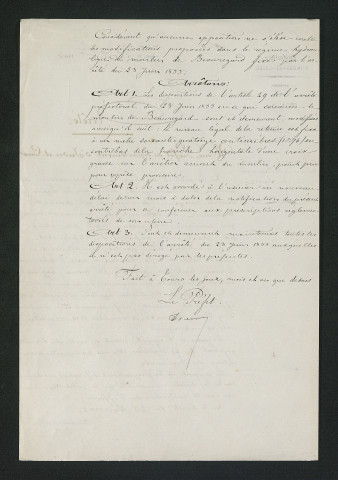 Considérant qu'aucune opposition ne s'est
de modifications proposées dans le régime hydrau
lique du moulin de Beauregard fixé par l'ar
rêté du 23 Juin 1855.
Arrêtons:
Art 1. Les dispositions de l'article 29 de l'arrêté
préfectoral du 23 Juin 1855 en ce qui concerne le
moulin de Beauregard sont et demeurent modifiées
ainsi qu'il suit: le niveau légal de la retenue est fixé
à un mètre soixante quatorze
contrebas de la horizontale d'une croix
gravée sur du moulin, prise
pour repère provisoire.
Art 2. Il est accordé à l'usinier un nouveau
délai de mois à dater de la notification du présent
arrêté pour se conformer aux prescriptions réglemen
taires de son usine.
Art 3. Sont et demeurent toutes les
dispositions de l'arrêté du 23 juin 1855 auxquelles
il n'est pas dérogé par les présentes.
Fait à Tours les jour, mois et an que dessus.
Le Préfet